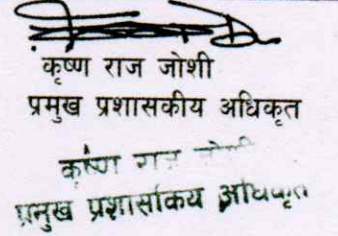 कृष्ण राज जोशी
प्रमुख प्रशासकीय अधिकृत
कृष्ण राज जोशी
प्रमुख प्रशासकिय अधिकृत